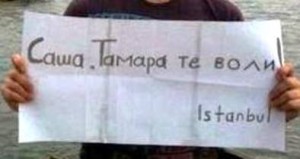 Саша, Тамара те воли!
Istanbul